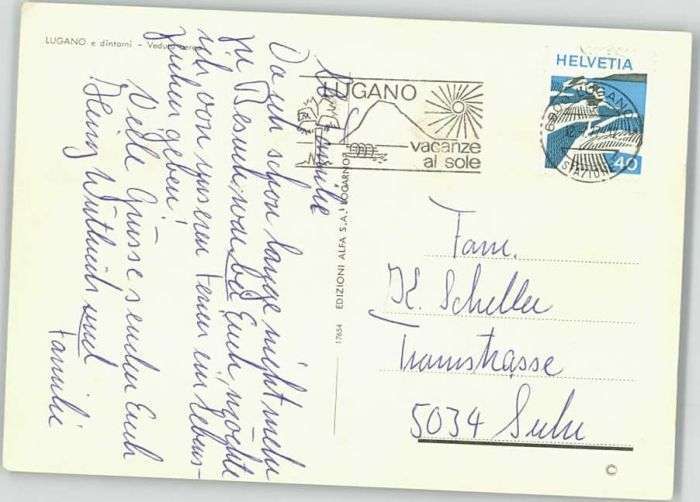 LUGANO e dintorni - Veduta aerea
Familie
Da ich schon lange nicht mehr
zu Besuch war bei Euch, möchte
ich von unseren Ferien ein Lebens-
zeichen geben!
Viele Grüsse senden Euch
Heinz Wüthrich und
Familie
17654 EDIZIONI ALFA S.A. LOCARNO
LUGANO
vacanze
al sole
HELVETIA
40
6900 LUGANO
STAZIONE
Fam.
K. Scheller
Tramstrasse
5034 Suhr
©